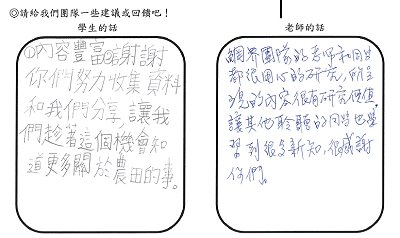 ◎請給我們團隊一些建議或回饋吧！
學生的話
①內容豐富感謝謝
你們努力收集資料
和我們分享，讓我
們趁著這個機會知
道更多關於農田的事。
老師的話
團隊的老師和同學
都很用心的研究，所呈
現的內容很有研究價值，
讓其他聆聽的同學也學
習到很多新知，很感謝
你們。